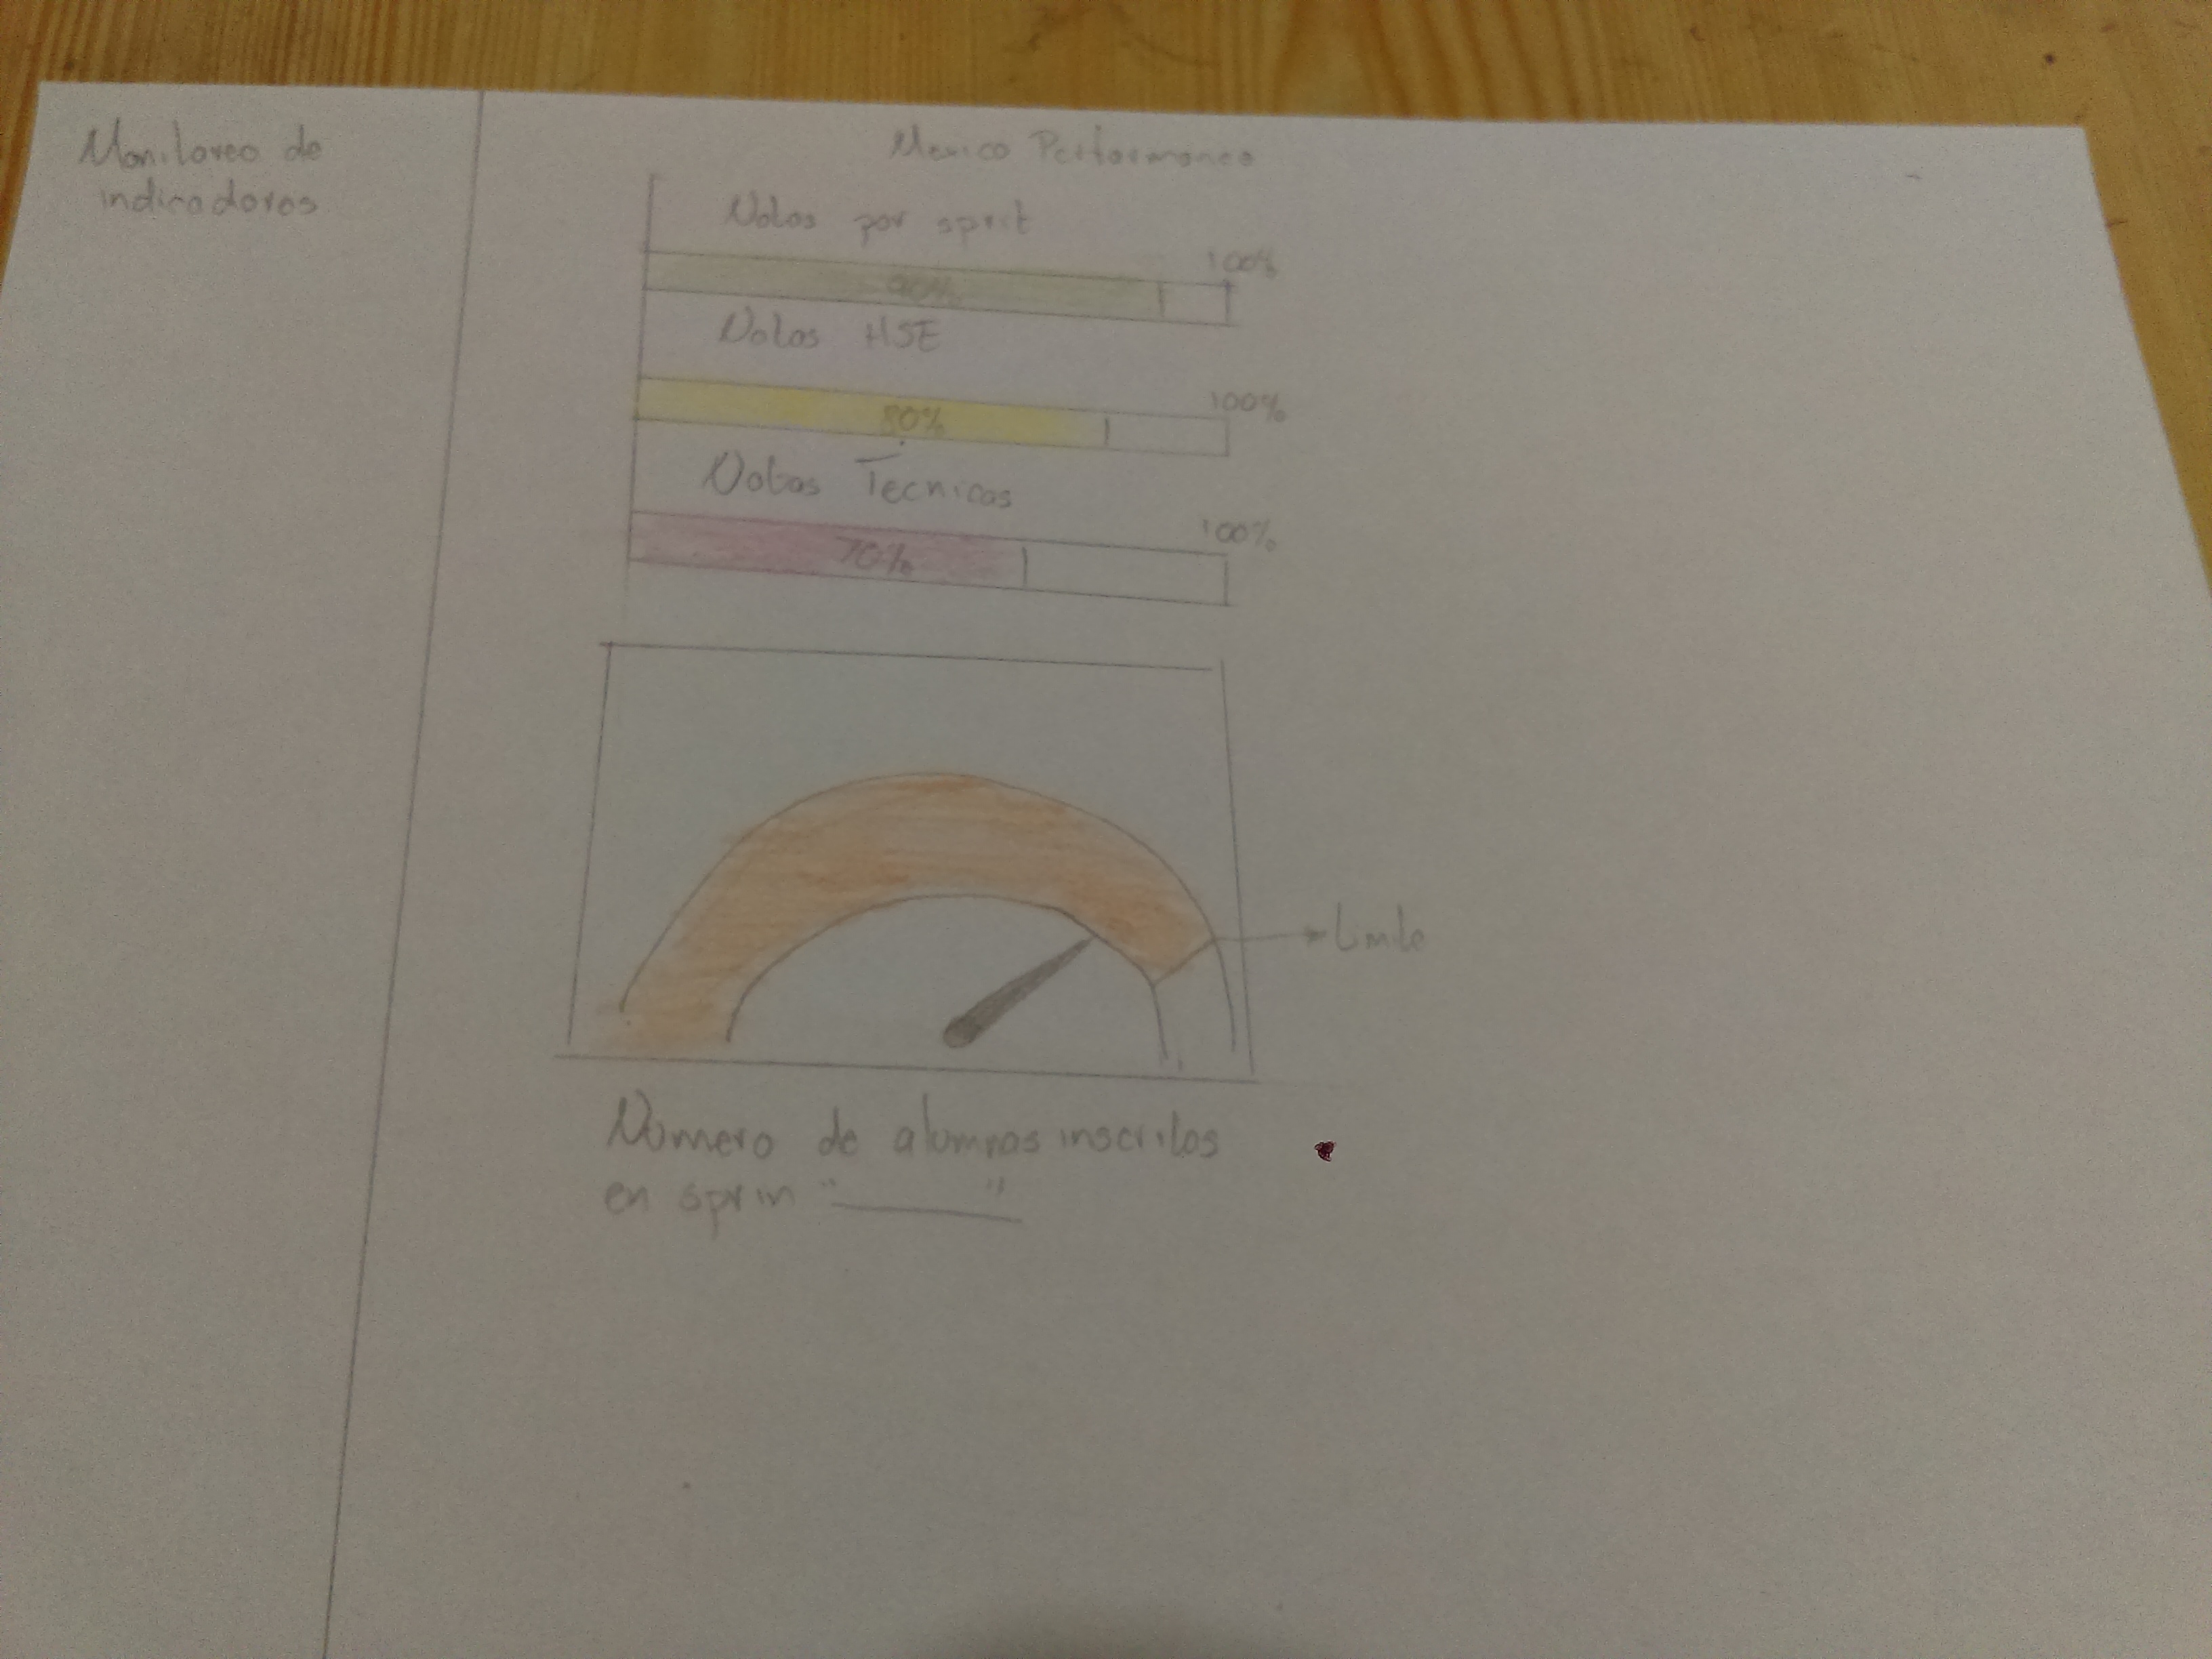 Monitoreo de
indicadores
Mexico Performance
Notas por sprit
100%
90%
Notas HSE
100%
80%
Notas Tecnicas
100%
70%
Limite
Número de alumnas inscritas
en sprin "______"